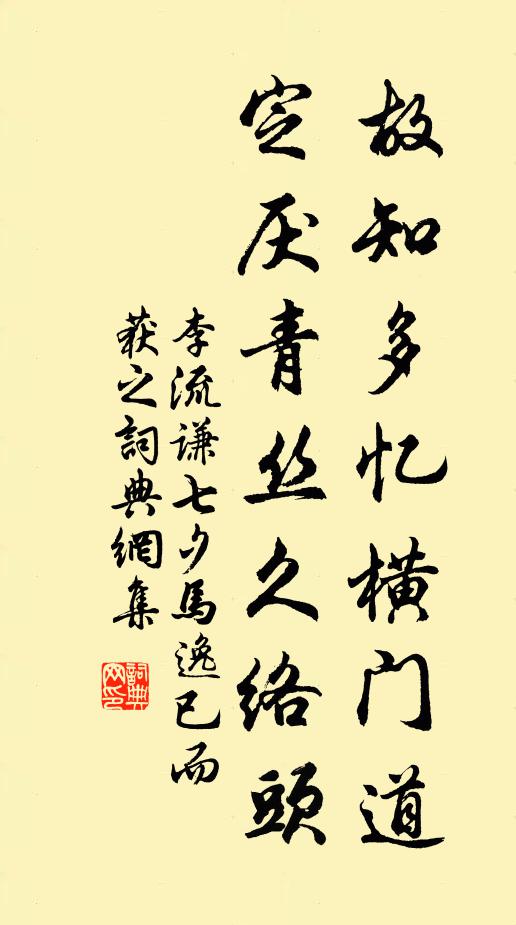 故知多忆横门道
定厌青丝久络頭
李流谦七夕馬逸已而
获之詞典網集
詞典
网印